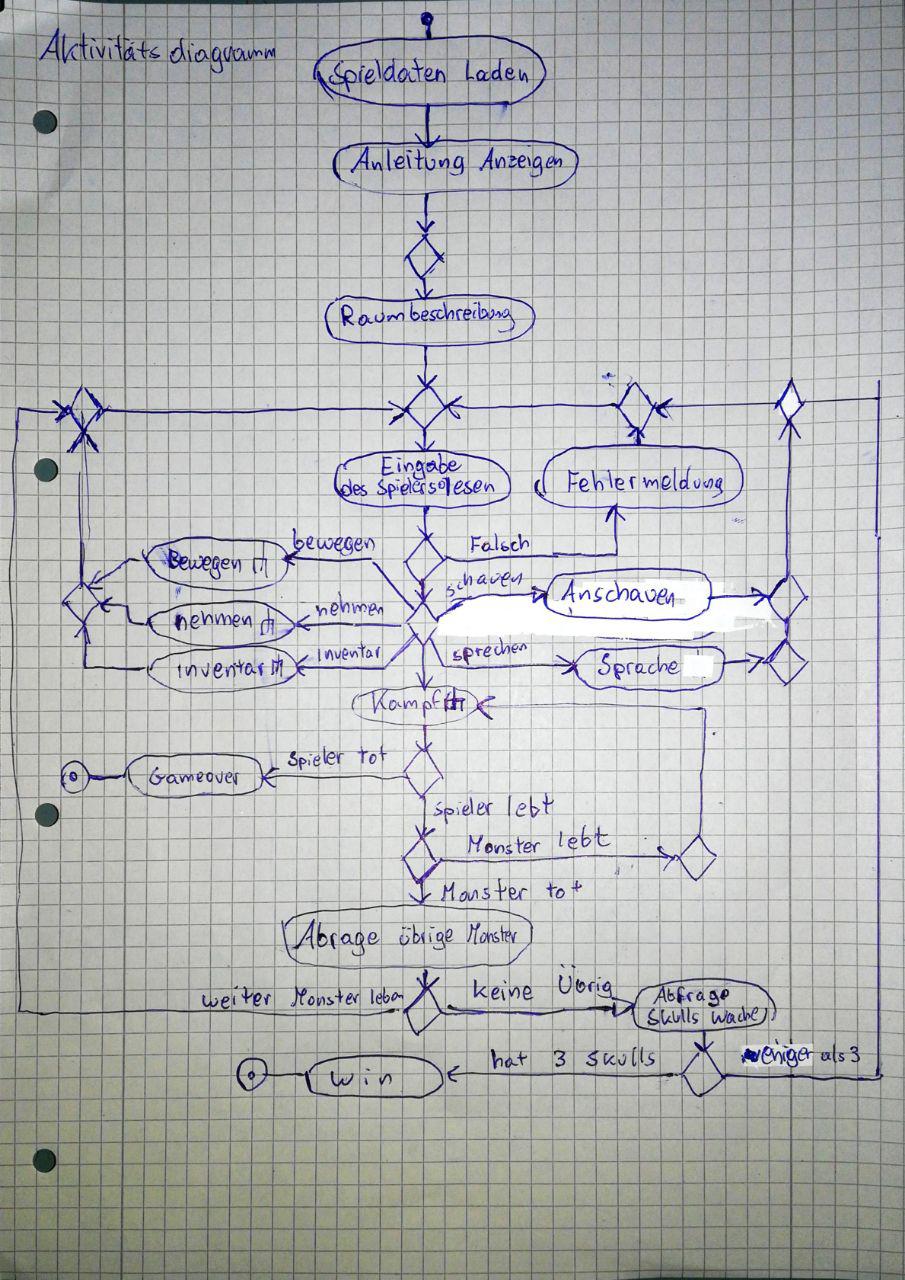 Aktivitäts diagramm
Spieldaten Laden
Anleitung Anzeigen
Raumbeschreibung
Eingabe
des Spielers
Fehlermeldung
Falsch
bewegen
Bewegen
schauen
Anschauen
nehmen
nehmen
Inventar
inventar
sprechen
Sprache
Kampf
Spieler tot
Gameover
spieler lebt
Monster lebt
Monster tot
Abrage übrige Monster
weiter Monster leben
keine Übrig
Abfrage
Skulls wache
hat 3 Skulls
weniger als 3
Win